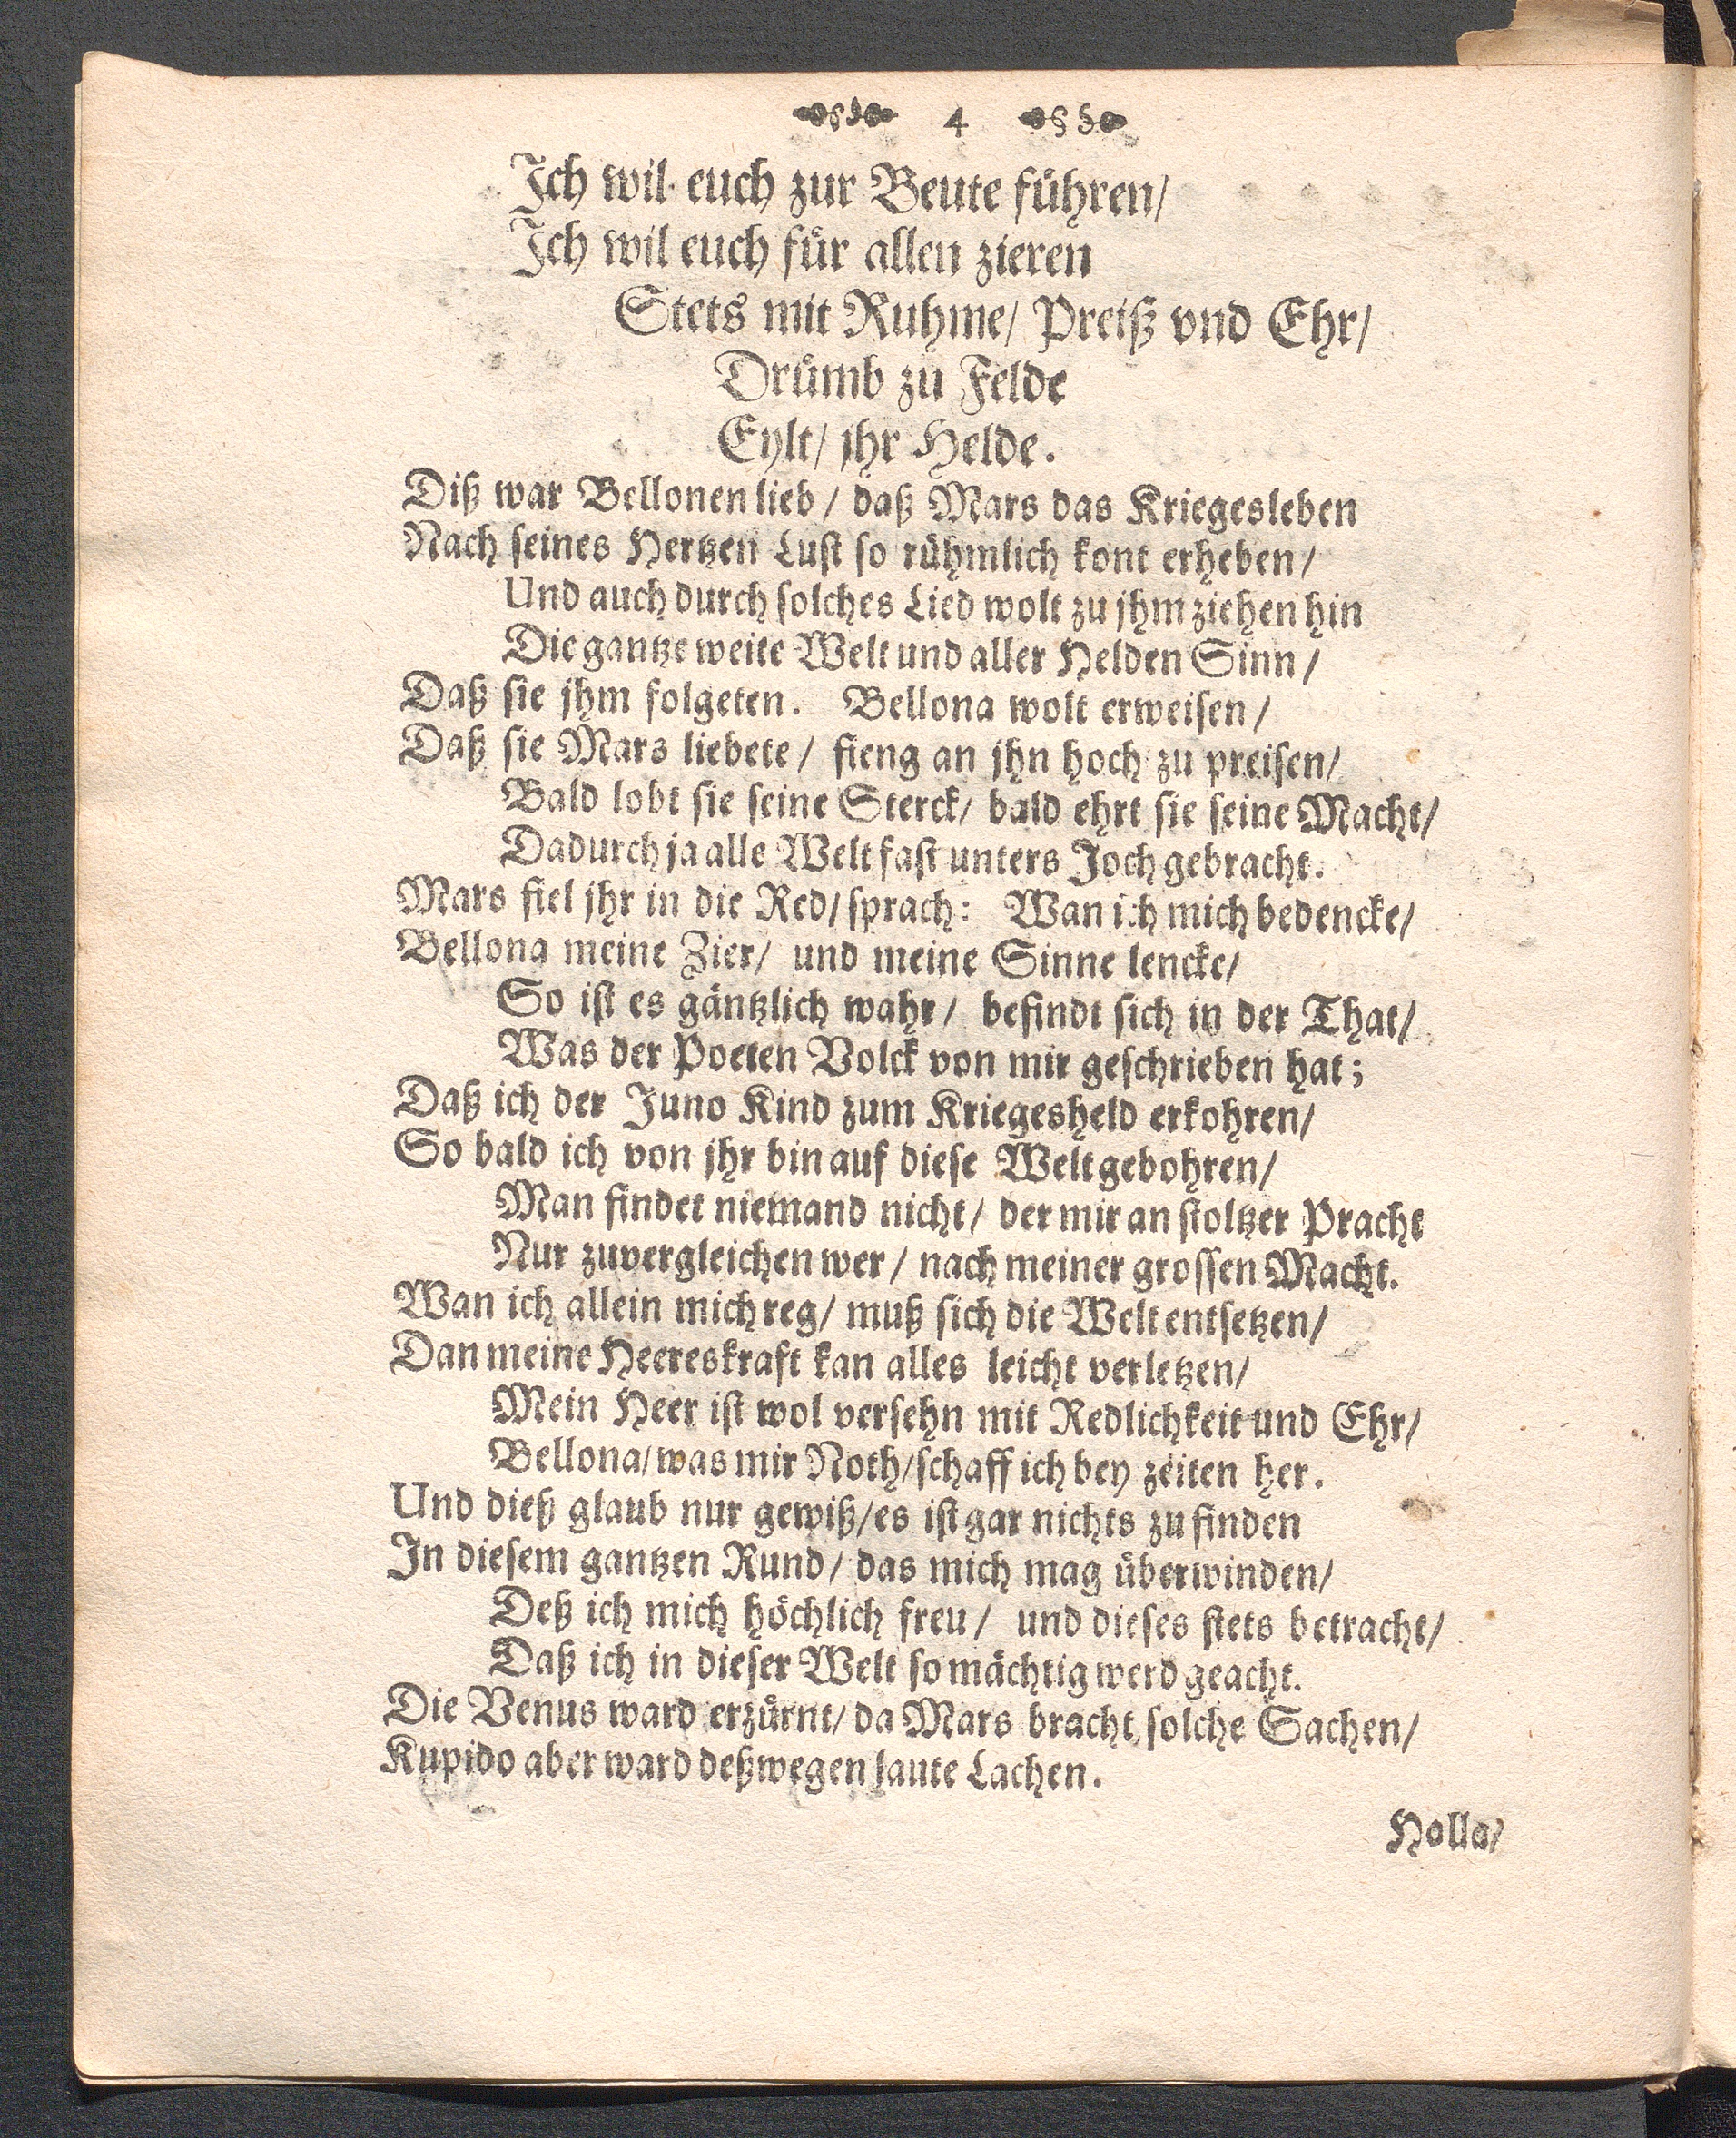 4
Ich wil euch zur Beute führen/
Ich wil euch für allen zieren
Stets mit Ruhme/ Preiß vnd Ehr/
Drümb zu Felde
Eylt/ jhr Helde.
Diß war Bellonen lieb/ daß Mars das Kriegesleben
Nach seines Hertzen Lust so rühmlich kont erheben/
Und auch durch solches Lied wolt zu jhm ziehen hin
Die gantze weite Welt und aller Helden Sinn/
Daß sie jhm folgeten. Bellona wolt erweisen/
Daß sie Mars liebete/ fieng an jhn hoch zu preisen/
Bald lobt sie seine Sterck/ bald ehrt sie seine Macht/
Dadurch ja alle Welt fast unters Joch gebracht.
Mars fiel jhr in die Red/ sprach: Wan ich mich bedencke/
Bellona meine Zier/ und meine Sinne lencke/
So ist es gäntzlich wahr/ befindt sich in der That/
Was der Poeten Volck von mir geschrieben hat;
Daß ich der Juno Kind zum Kriegesheld erkohren/
So bald ich von jhr bin auf diese Welt gebohren/
Man findet niemand nicht/ der mir an stoltzer Pracht
Nur zuvergleichen wer/ nach meiner grossen Macht.
Wan ich allein mich reg/ muß sich die Welt entsetzen/
Dan meine Heereskraft kan alles leicht verletzen/
Mein Heer ist wol versehn mit Redlichkeit und Ehr/
Bellona/ was mir Noth/ schaff ich bey zeiten her.
Und dieß glaub nur gewiß/ es ist gar nichts zu finden
In diesem gantzen Rund/ das mich mag überwinden/
Deß ich mich höchlich freu/ und dieses stets betracht/
Daß ich in dieser Welt so mächtig werd geacht.
Die Venus ward erzürnt/ da Mars bracht solche Sachen/
Kupido aber ward deßwegen laute Lachen.
Holla/